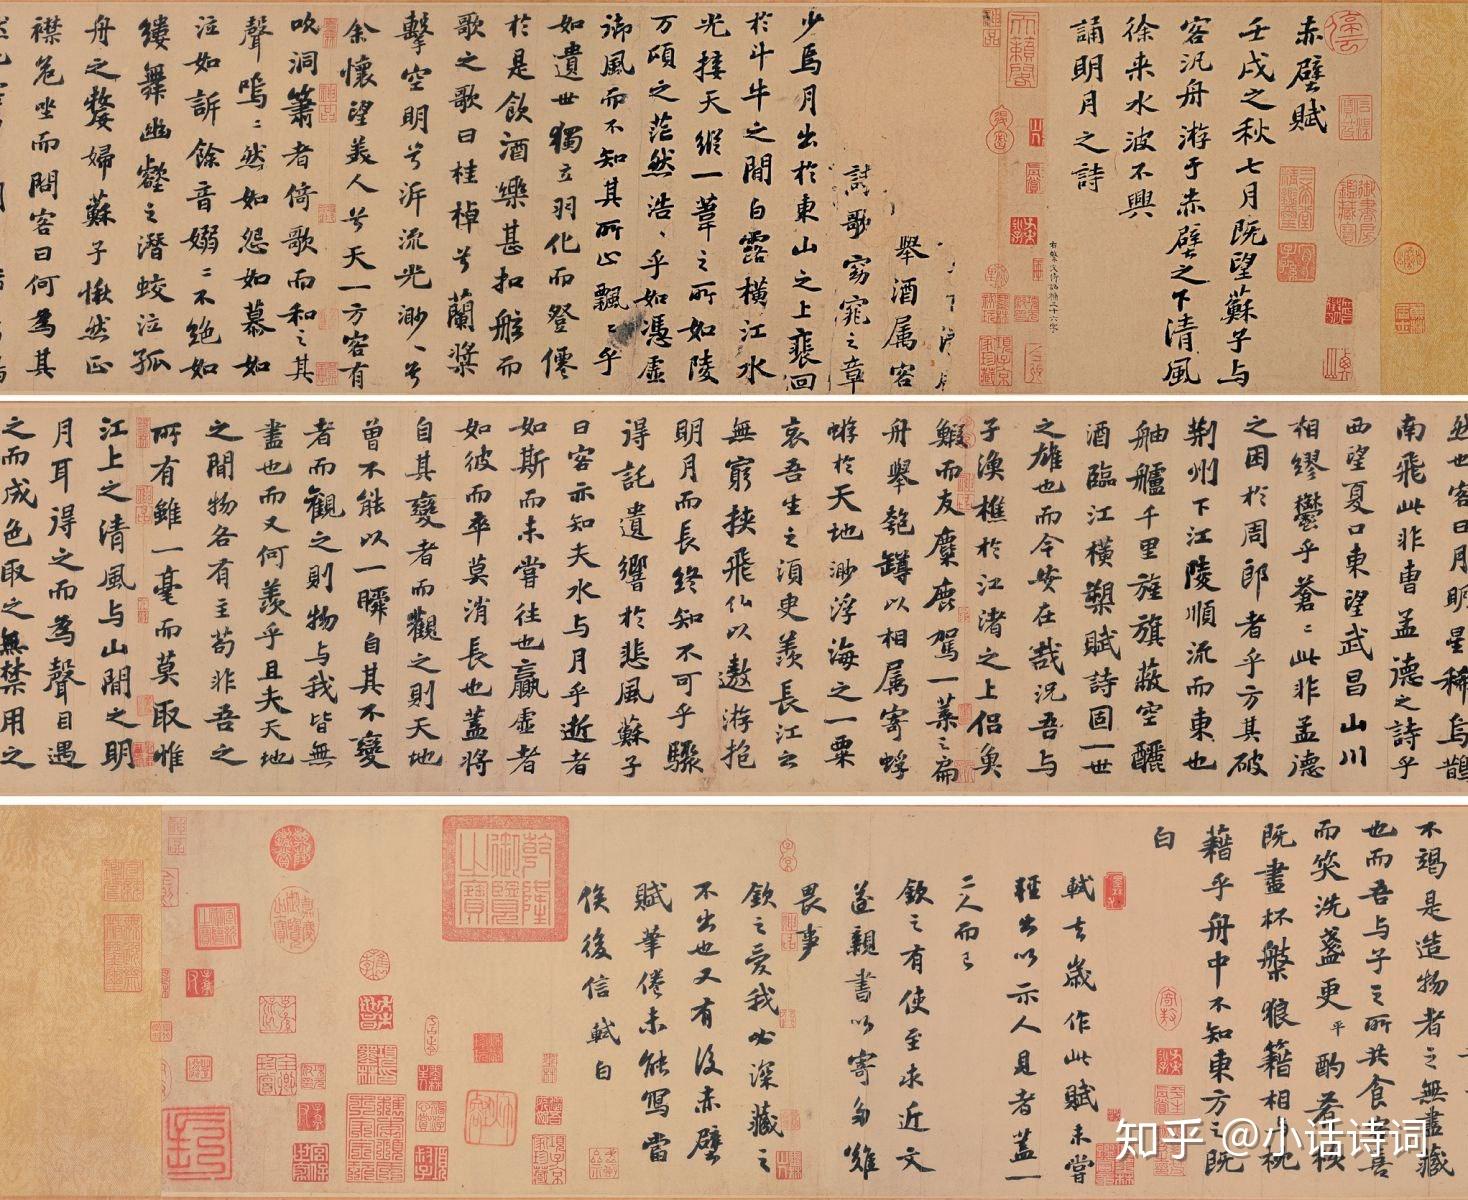 赤壁賦
壬戌之秋七月既望蘇子与
客汎舟游于赤壁之下清風
徐来水波不興
誦明月之詩
舉酒属客
詩歌窈窕之章
少焉月出於東山之上裵回
於斗牛之間白露横江水
光接天縱一葦之所如陵
万頃之茫然浩〻乎如馮虛
御風而不知其所止飄〻乎
如遺世獨立羽化而登僊
於是飲酒樂甚扣舷而
歌之歌曰桂棹兮蘭槳
擊空明兮泝流光渺〻兮
余懷望美人兮天一方客有
吹洞簫者倚歌而和之其
聲嗚〻然如怨如慕如
泣如訴餘音嫋〻不絶如
縷舞幽壑之潜蛟泣孤
舟之嫠婦蘇子愀然正
襟危坐而問客曰何為其
然也客曰月明星稀烏鵲
南飛此非曹孟德之詩乎
西望夏口東望武昌山川
相繆鬱乎蒼〻此非孟德
之困於周郎者乎方其破
荆州下江陵順流而東也
舳艫千里旌旗蔽空釃
酒臨江橫槊賦詩固一世
之雄也而今安在哉況吾与
子漁樵於江渚之上侣魚
鰕而友麋鹿駕一葉之扁
舟舉匏罇以相属寄蜉
蝣於天地渺浮海之一粟
哀吾生之須臾羨長江之
無窮挾飛仙以遨游抱
明月而長終知不可乎驟
得託遺響於悲風蘇子
曰客亦知夫水与月乎逝者
如斯而未嘗往也贏虛者
如彼而卒莫消長也蓋將
自其變者而觀之則天地
曾不能以一瞬自其不變
者而觀之則物与我皆無
盡也而又何羨乎且夫天地
之間物各有主苟非吾之
所有雖一毫而莫取惟
江上之清風与山間之明
月耳得之而為聲目遇
之而成色取之無禁用之
不竭是造物者之無盡藏
也而吾与子之所共食客喜
而笑洗盞更酌肴核
既盡杯盤狼籍相与枕
藉乎舟中不知東方之既
白
軾去歲作此賦未嘗
輕出以示人見者蓋一
二人而已
欽之有使至求近文
遂親書以寄多難
畏事
欽之愛我必深藏之
不出也又有後赤壁
賦筆倦未能寫當
俟後信軾白
知乎 @小话诗词